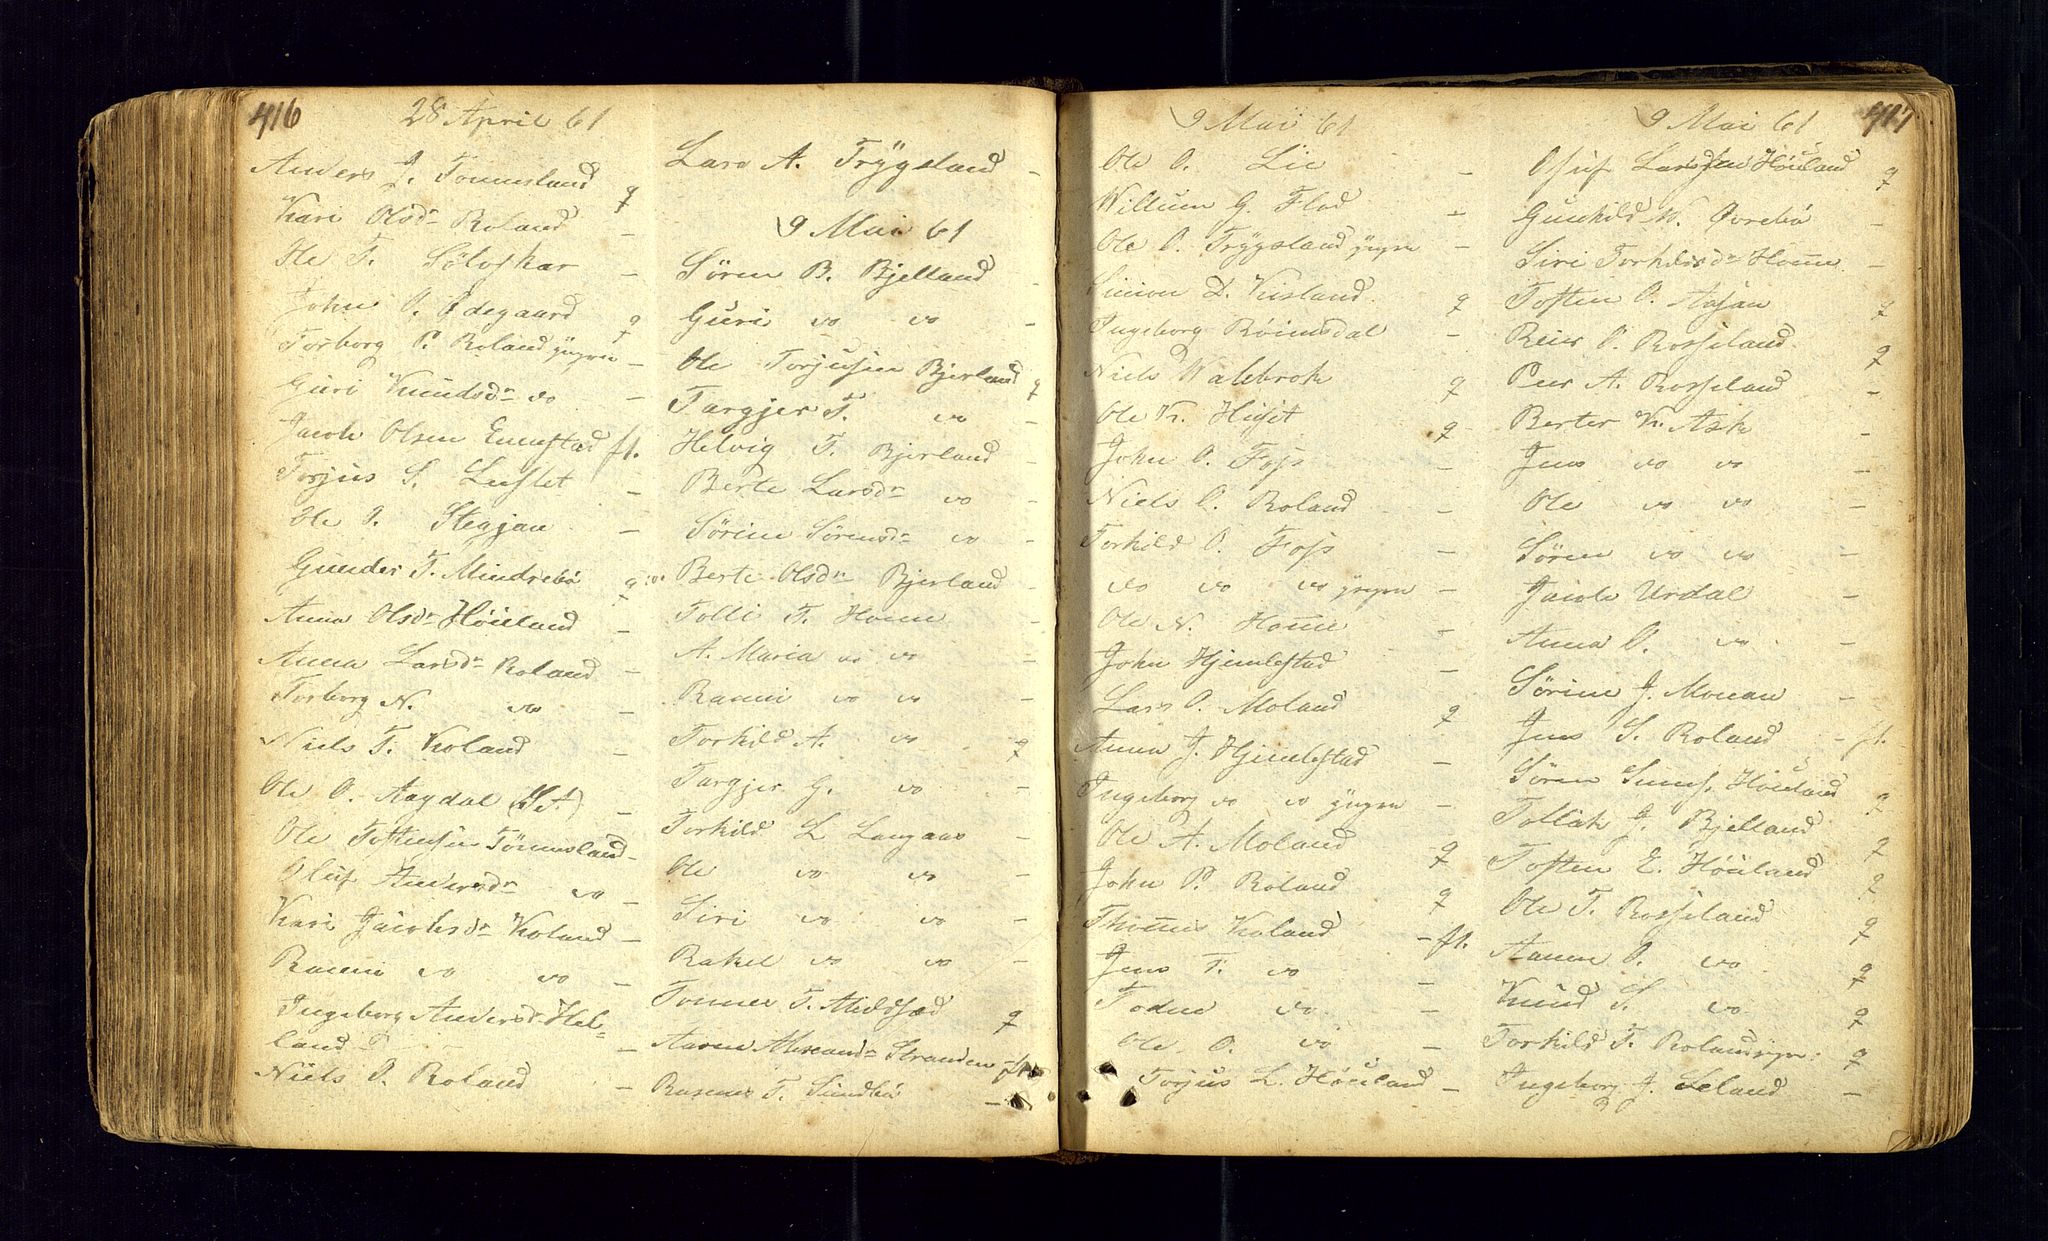 416
28 April 61
Anders J. Tönnesland q
Kari Olsdr Roland -
Ole T. Sölvskar -
John O. Ødegaard q
Torborg P. Roland yngre -
Guri Knudsdr vo -
Jacob Olsen Ennestad ft.
Torjus S. Leestet -
Ole J. Stegjan -
Gunder T. Mindrebö q
Anna Olsdr Höiland -
Anna Larsdr Roland -
Torborg N. vo -
Niels T. Koland -
Ole O. Augdal -
Ole Tostensen Tönnesland -
Oluf Andersdr vo -
Kari Jacobsdr Koland -
Ranni vo vo -
Ingeborg Andersdr Hel-
land -
Niels O. Roland -
Lars A. Trygsland -
9 Mai 61
Sören B. Bjelland -
Guri vo vo -
Ole Torjusen Bjerland q
Targjer T. vo -
Helvig T. Bjerland -
Berte Larsdr vo -
Sörine Sörensdr vo -
Berte Olsdr Bjerland -
Tolli T. Homme -
A. Maria vo vo -
Ranni vo vo -
Torkild A. vo q
Targjer G. vo -
Torkild L Langaas -
Ole vo vo -
Siri vo vo -
Rakel vo vo -
Tonnes T. Mildsæd q
Aaren Stranden ft.
Rasmus T. Sundbö -
9 Mai 61
Ole O. Lie -
Willum G. Flod -
Ole O. Trygsland yngre -
Simon D. Kisland q
Ingeborg Röiensdal -
Niels Walebrok q
Ole K. Huset q
John O. Foss -
Niels O. Roland -
Torkild O. Foss -
vo vo vo yngre -
Ole N. Home -
John Hjemlestad -
Lars O. Moland q
Anna J. Hjemlestad -
Ingeborg vo vo yngre -
Ole A. Moland q
John P. Roland q
Thomas Koland - ft.
Jens T. vo -
Todne vo -
Ole O. vo -
Torjus L. Höiland -
9 Mai 61
417
Osuf Larsen Höiland q
Gunhild W. Øvrebö -
Siri Torkildsdr Home -
Tosten O. Aasen q
Reier O. Rosseland q
Peer A. Rosseland -
Berter K. Ask -
Jens vo vo -
Ole vo vo -
Sören vo vo -
Jacob Urdal -
Anna O. vo -
Sörine J. Monan -
Jens S. Roland - ft.
Sören Höiland q
Tollak J. Bjelland q
Tosten E. Höiland q
Ole T. Rosseland q
Aanen O. vo q
Knud S. vo q
Torkild T. Roland yngre q
Ingeborg J. Leland -